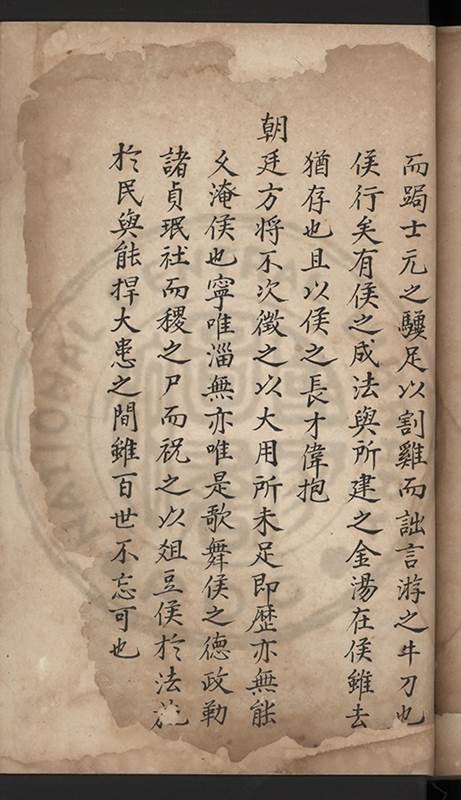 而跼士元之驥足以割雞而詘言游之牛刀也
侯行矣有侯之成法與所建之金湯在侯雖去
猶存也且以侯之長才偉抱
朝廷方將不次徵之以大用所未足即歷亦無能
久淹侯也寧唯淄無亦唯是歌舞侯之德政勒
諸貞珉社而稷之尸而祝之以俎豆侯於法施
於民與能捍大患之間雖百世不忘可也